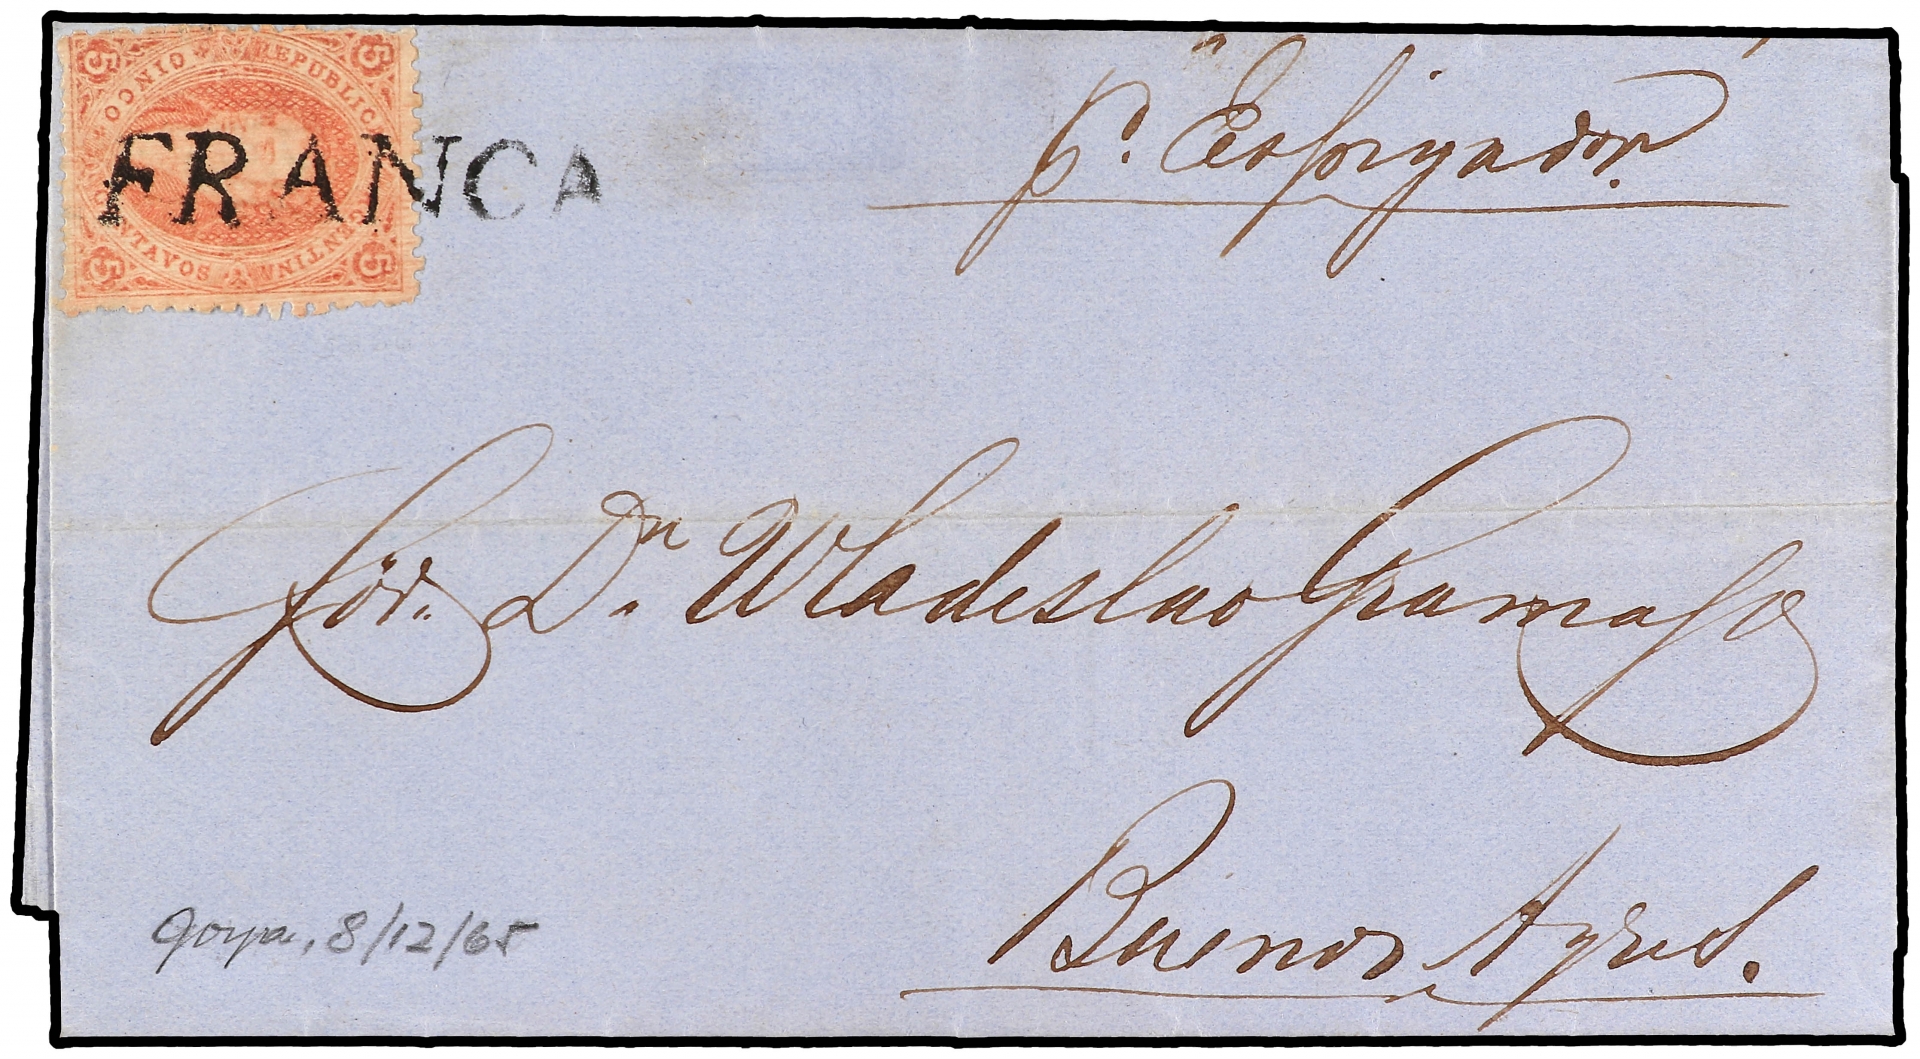 5 5
REPUBLICA ARGENTINA
CINCO CENTAVOS
5 5
FRANCA
p.r Espigador
Sör. Dn. Wladeslao Gramajo
Buenos Ayres.
Goya, 8/12/65